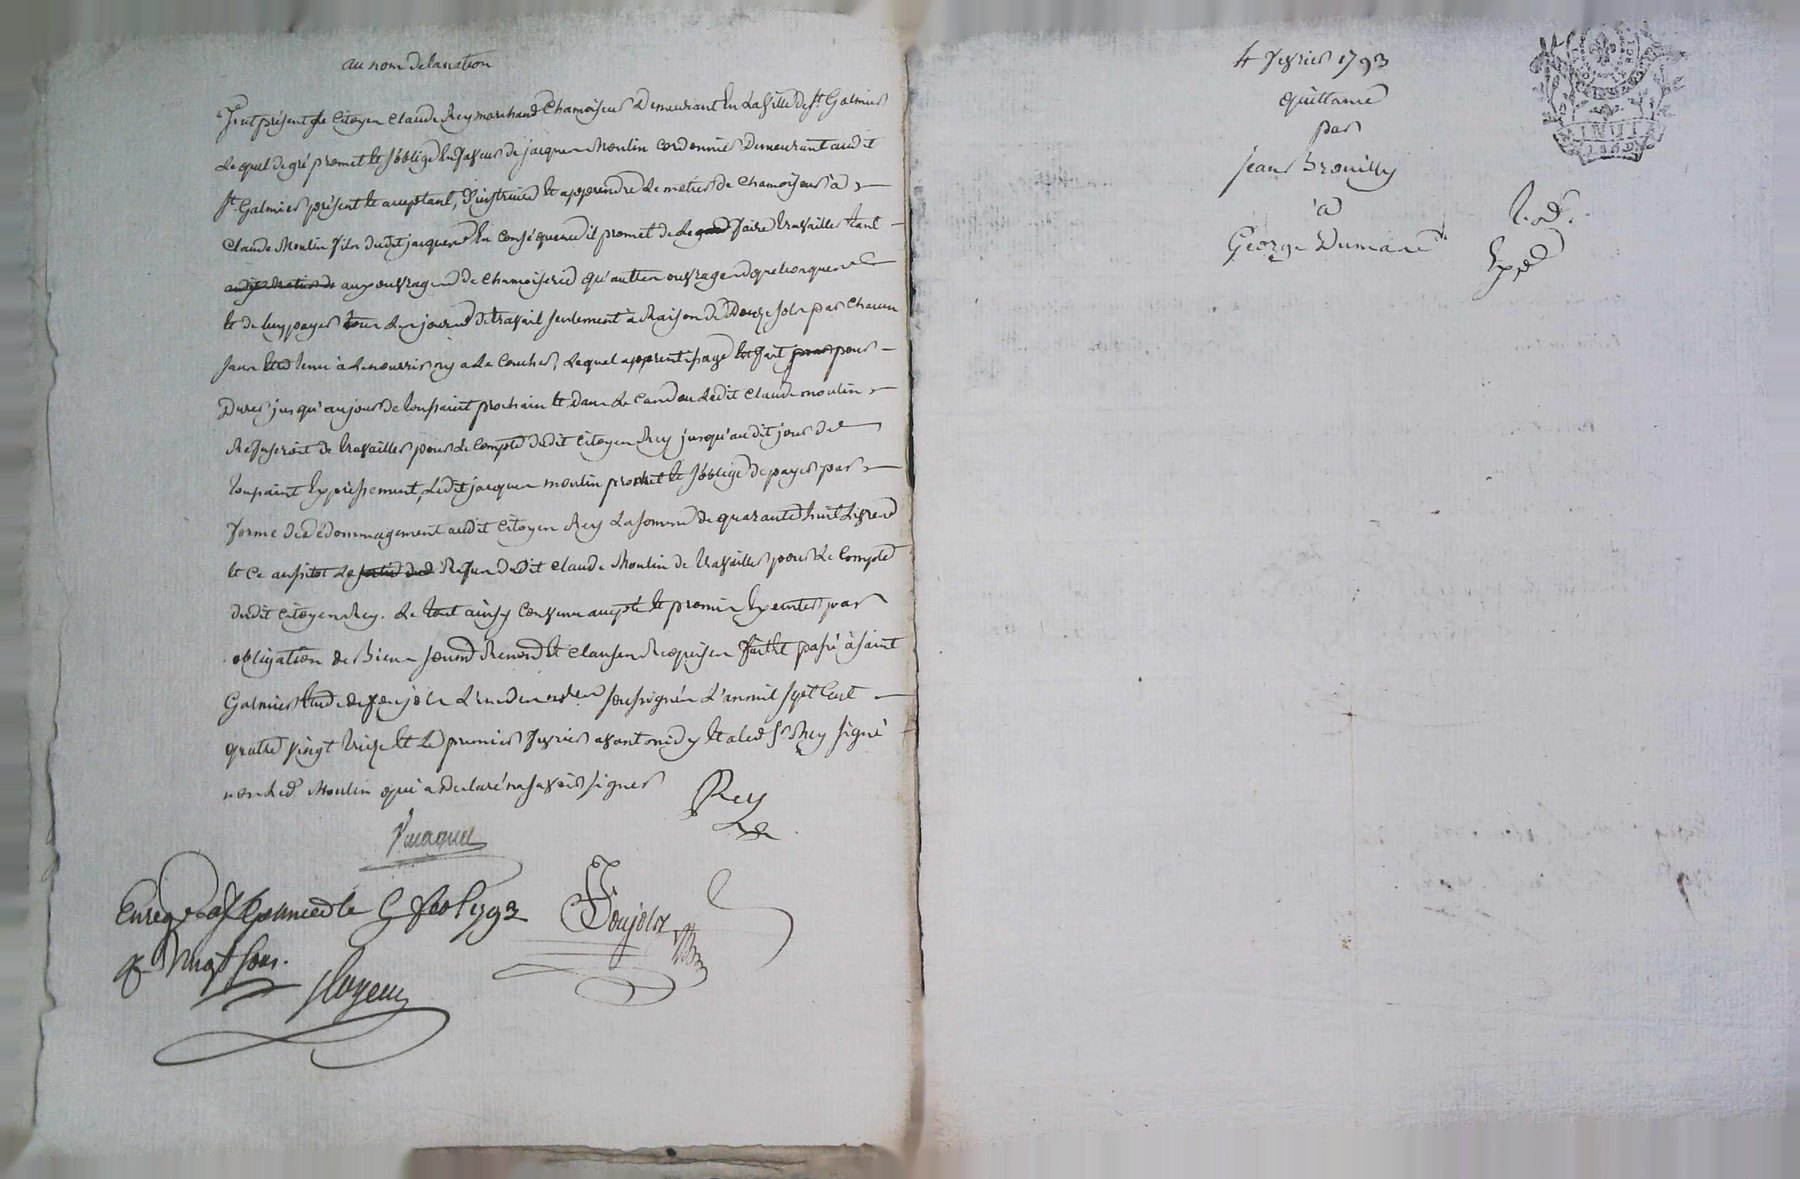 au nom de la nation
fut présent le Citoyen Claude Rey marchand Chamoiseur demeurant en la ville de St Galmier
Lequel de gré promet et s'oblige en faveur de jacques Moulin cordonnier demeurant audit
St Galmier présent et acceptant, d'instruire et apprendre le metier de chamoiseur à
Claude Moulin fils dudit jacques En conséquence il promet de le faire travailler tant
aux ouvrages de chamoiserie qu'autres ouvrages quelconques
et de luy payer les jours de travail seulement à Raison de Douze sols par Chacun
sans etre tenu à le nourrir ny a le coucher, Lequel apprentissage est fait pour
Durer jusqu'au jour de toussaint prochain et dans le cas ou ledit Claude moulin
Refuseroit de travailler pour le compte dudit Citoyen Rey jusqu'audit jour de
toussaint Expressement, ledit jacques moulin promet et s'oblige de payer par
forme de dédommagement audit Citoyen Rey la somme de quarante huit Livres
et ce aussitot le Refus dudit Claude Moulin de travailler pour le Compte
dudit Citoyen Rey. Le tout ainsy convenu accepté et promis Executer par
obligation de Biens soumis Renoncé et clauses Requises fait et passé à saint
Galmier Etude de foujols L'un des notres soussignés L'an mil sept Cent
quatre vingt treize et Le premier fevrier avant midy et a led Sr Rey signé
non led Moulin qui a declaré ne savoir signer
Rey
foujols
Enregé a St Galmier le 9 fev 1793
R vingt sous.
4 fevrier 1793
quittance
par
Jean Brouilly
à
George Dumas
Exped